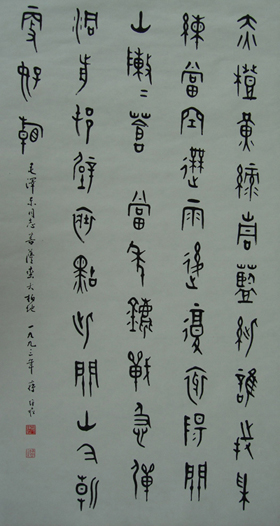 赤橙黃綠青藍紫誰持采
練當空舞雨後復斜陽關
山陣〻蒼 當年鏖戰急彈
洞前邨壁裝點此關山今朝
更好看
毛澤東同志菩薩蠻大柏地 一九九三年